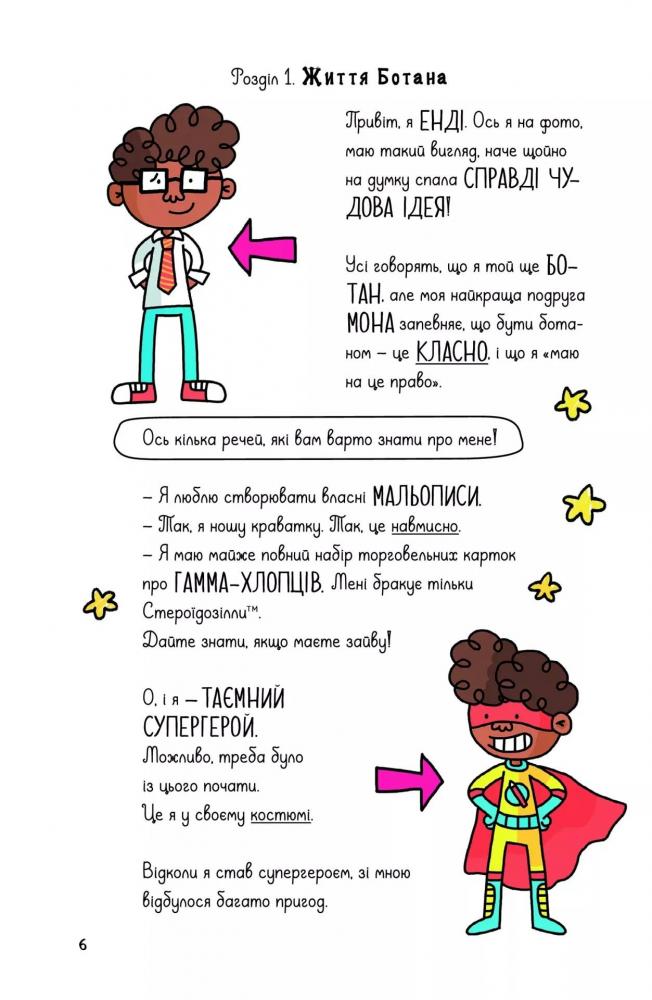 Розділ 1. Життя Ботана
Привіт, я ЕНДІ. Ось я на фото,
маю такий вигляд, наче щойно
на думку спала СПРАВДІ ЧУ-
ДОВА ІДЕЯ!
Усі говорять, що я той ще БО-
ТАН, але моя найкраща подруга
МОНА запевняє, що бути бота-
ном – це КЛАСНО, і що я «маю
на це право».
Ось кілька речей, які вам варто знати про мене!
– Я люблю створювати власні МАЛЬОПИСИ.
– Так, я ношу краватку. Так, це навмисно.
– Я маю майже повний набір торговельних карток
про ГАММА-ХЛОПЦІВ. Мені бракує тільки
Стероїдозілли™.
Дайте знати, якщо маєте зайву!
О, і я – ТАЄМНИЙ
СУПЕРГЕРОЙ.
Можливо, треба було
із цього почати.
Це я у своєму костюмі.
Відколи я став супергероєм, зі мною
відбулося багато пригод.
6